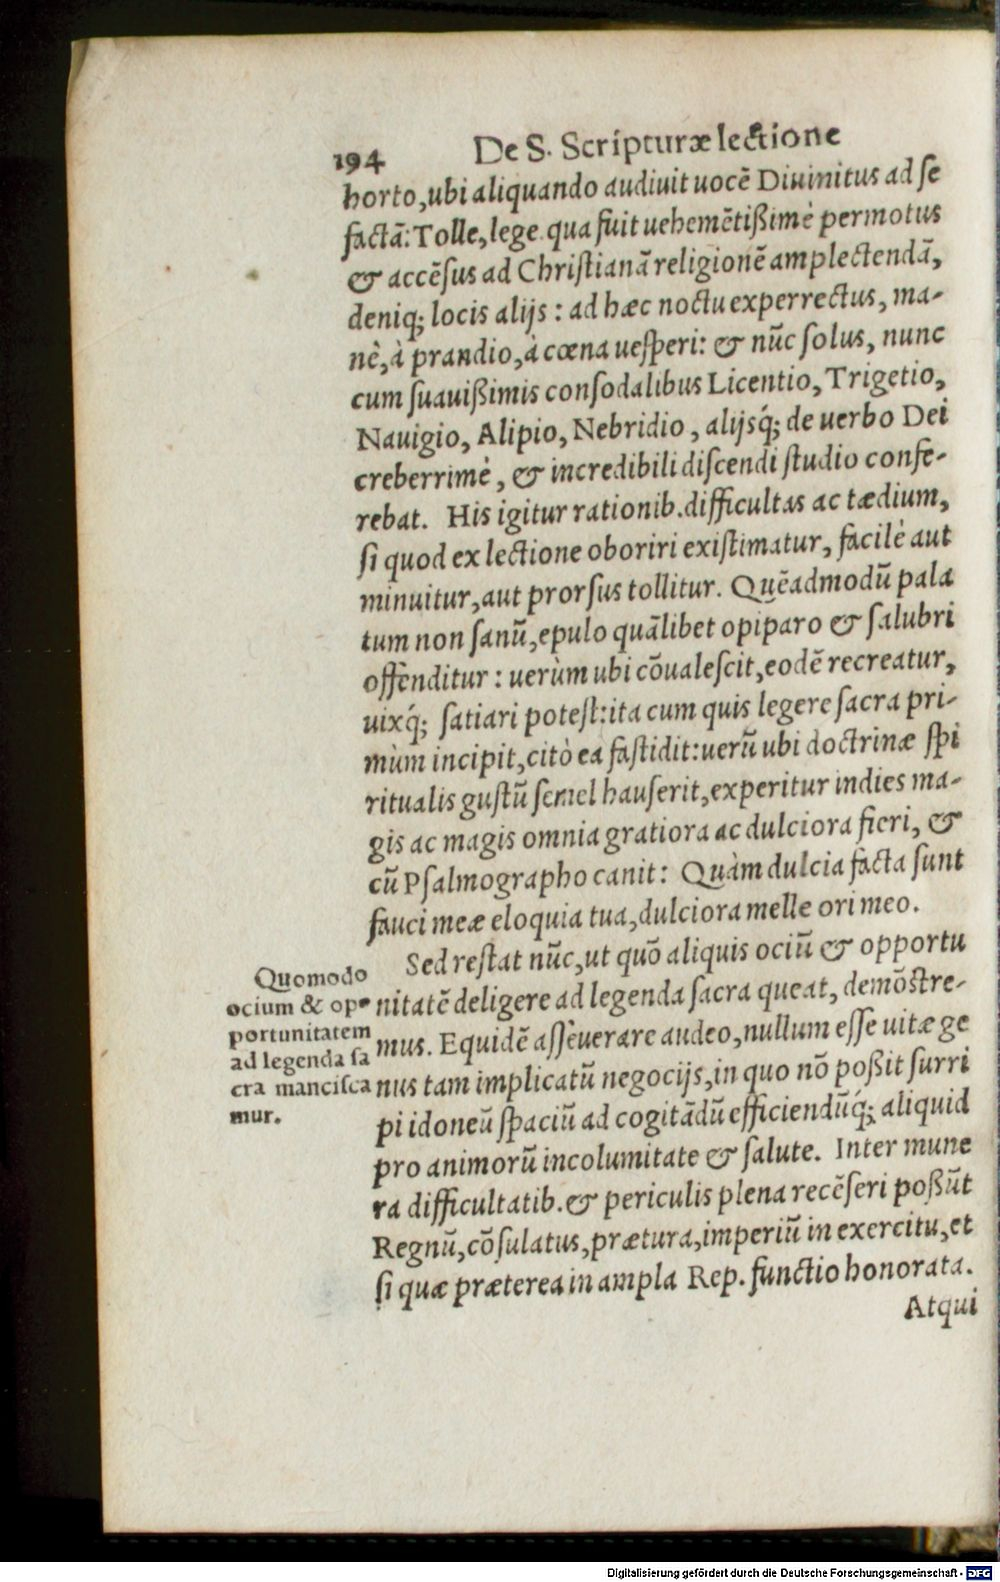 194 De S. Scripturæ lectione
horto, ubi aliquando audiuit uocē Diuinitus ad se
factā: Tolle, lege. qua fuit uehemētißimè permotus
& accēsus ad Christianā religionē amplectendā,
deniq; locis alijs: ad hæc noctu experrectus, ma-
nè, à prandio, à cœna uesperi: & nūc solus, nunc
cum suauißimis consodalibus Licentio, Trigetio,
Nauigio, Alipio, Nebridio, alijsq́; de uerbo Dei
creberrimè, & incredibili discendi studio confe-
rebat. His igitur rationib. difficultas ac tædium,
si quod ex lectione oboriri existimatur, facilè aut
minuitur, aut prorsus tollitur. Quēadmodū pala
tum non sanū, epulo quālibet opiparo & salubri
offenditur: uerùm ubi cōualescit, eodē recreatur,
uixq́; satiari potest: ita cum quis legere sacra pri-
mùm incipit, citò ea fastidit: uerū ubi doctrinæ spi
ritualis gustū semel hauserit, experitur indies ma-
gis ac magis omnia gratiora ac dulciora fieri, &
cū Psalmographo canit: Quàm dulcia facta sunt
fauci meæ eloquia tua, dulciora melle ori meo.
Sed restat nūc, ut quō aliquis ociū & opportu
nitatē deligere ad legenda sacra queat, demōstre-
mus. Equidē asseuerare audeo, nullum esse uitæ ge
nus tam implicatū negocijs, in quo nō poßit surri
pi idoneū spaciū ad cogitādū efficiendūq́; aliquid
pro animorū incolumitate & salute. Inter mune
ra difficultatib. & periculis plena recēseri poßūt
Regnū, cōsulatus, prætura, imperiū in exercitu, et
si quæ præterea in ampla Rep. functio honorata.
Atqui
Quomodo
ocium & op-
portunitatem
ad legenda sa
cra mancisca
mur.
Digitalisierung gefördert durch die Deutsche Forschungsgemeinschaft - DFG